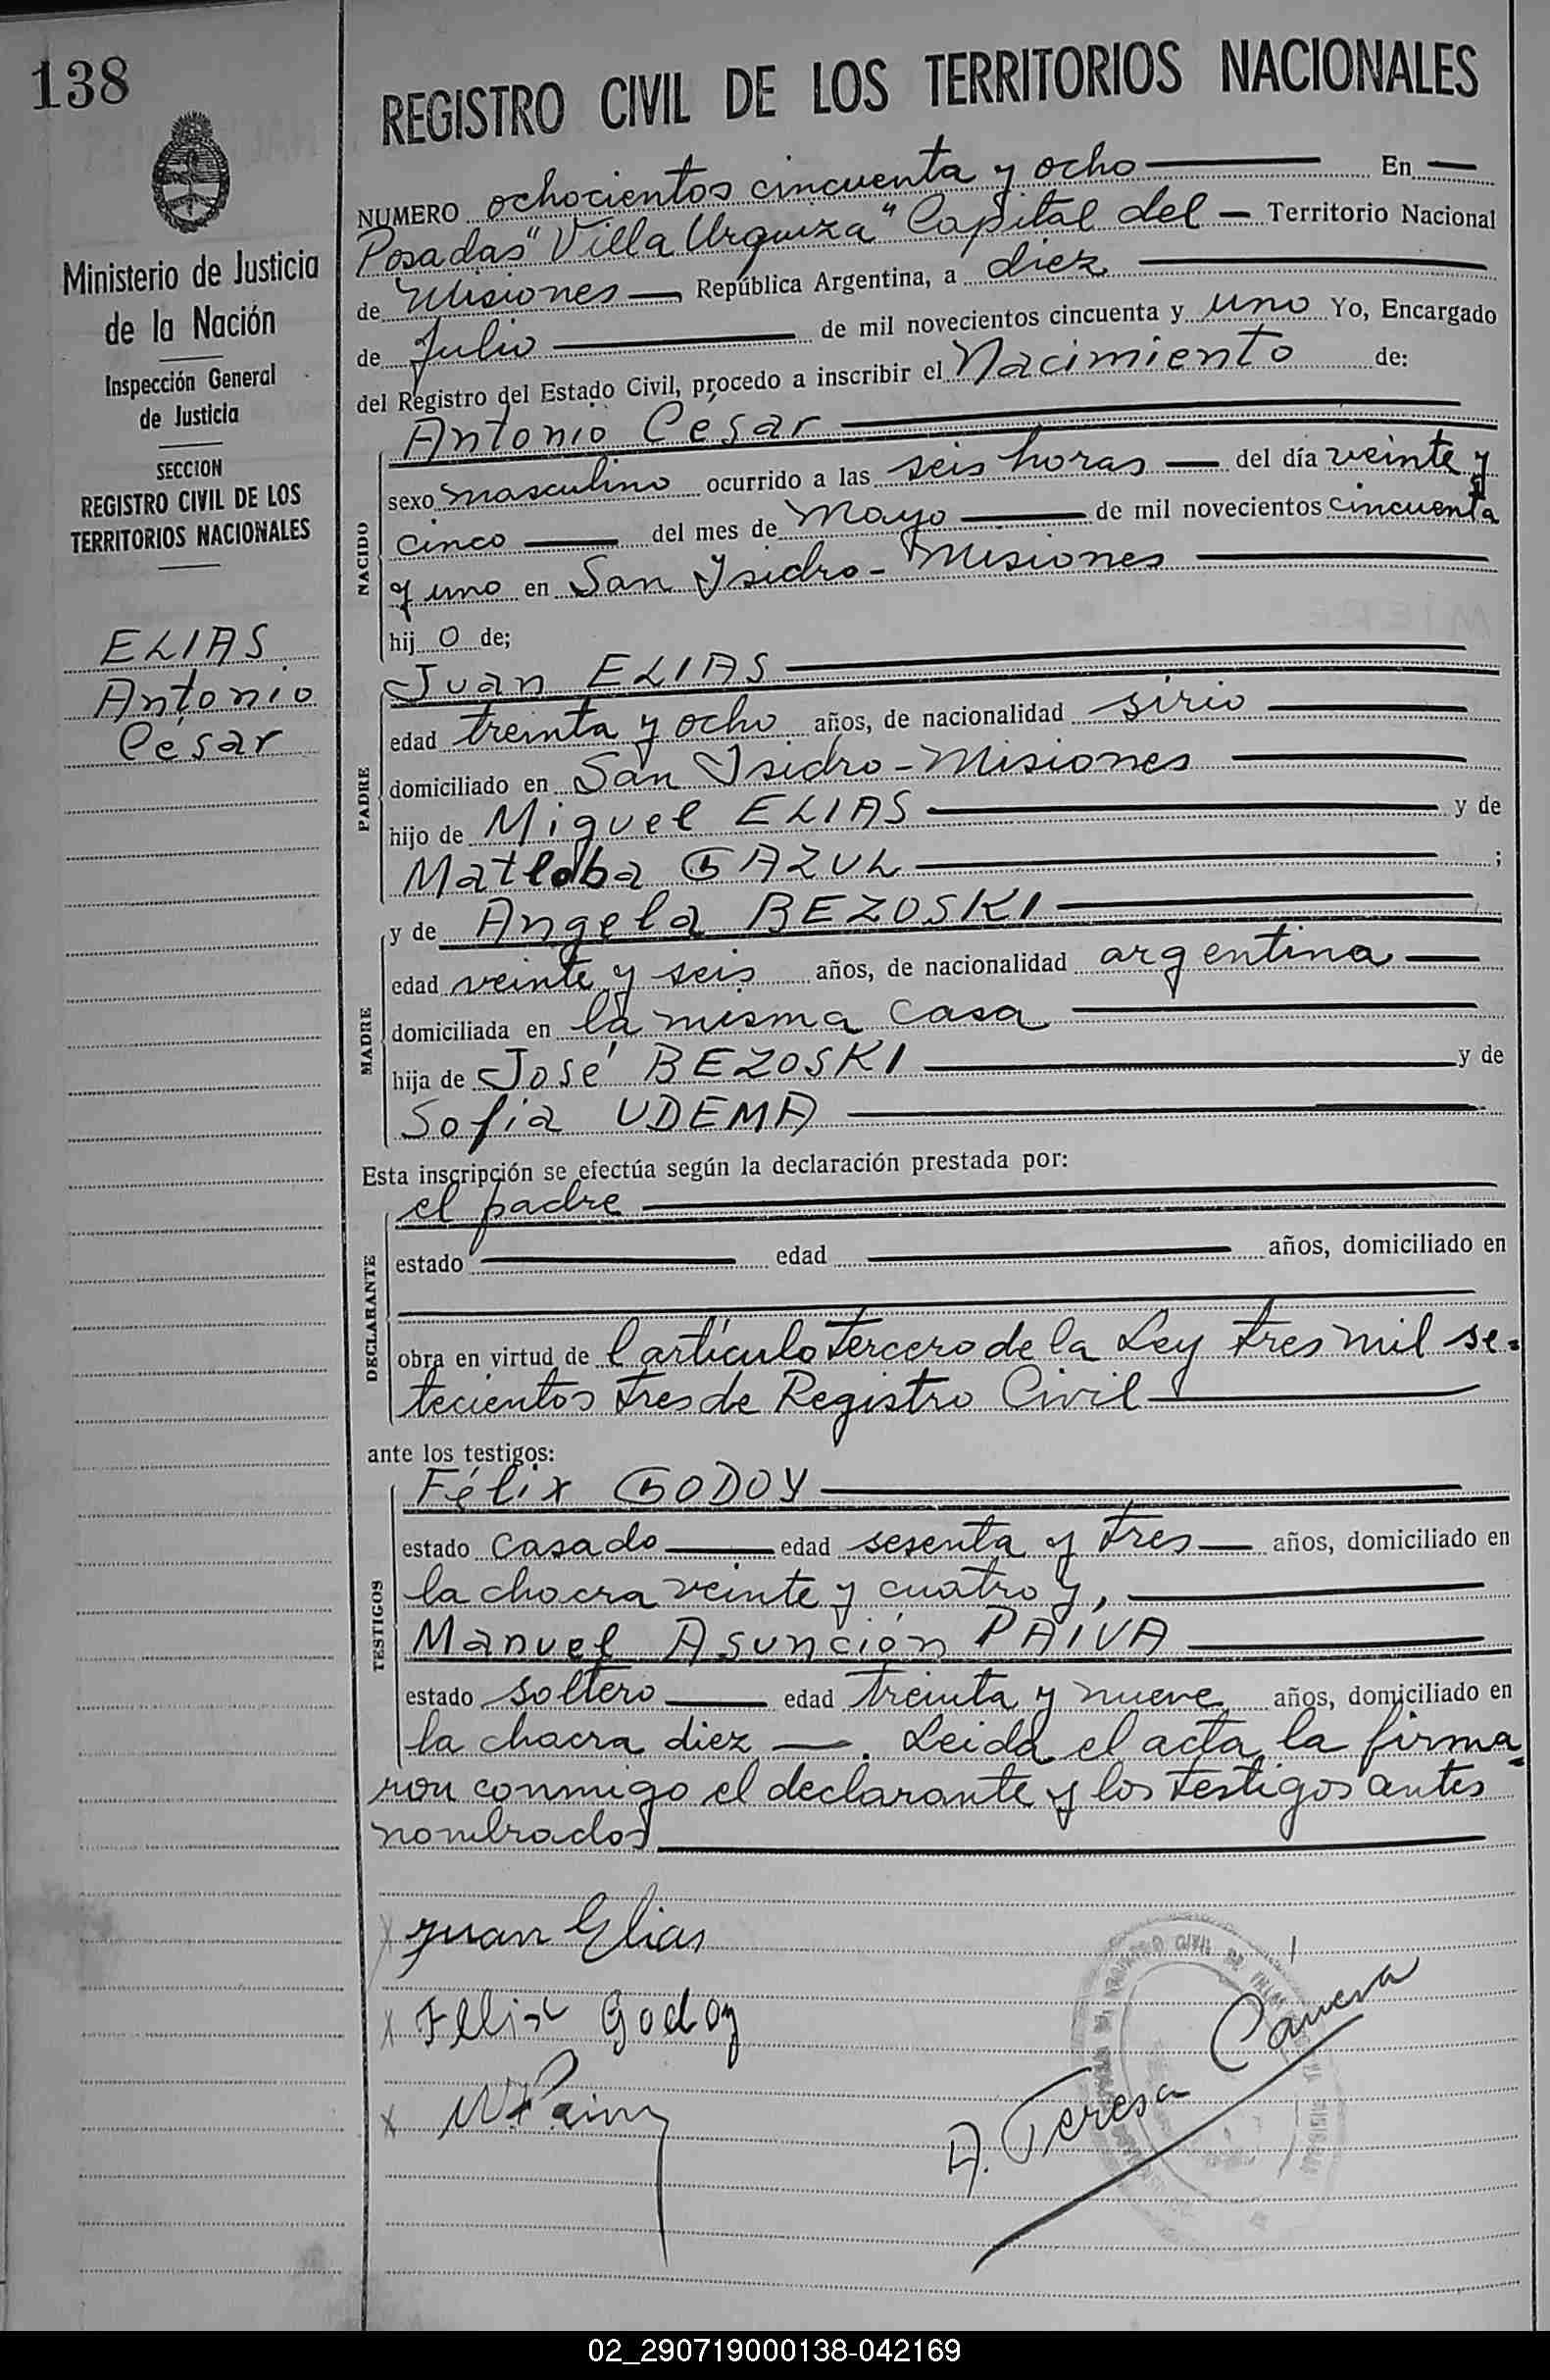 138
REGISTRO CIVIL DE LOS TERRITORIOS NACIONALES
Ministerio de Justicia
de la Nación
Inspección General
de Justicia
SECCION
REGISTRO CIVIL DE LOS
TERRITORIOS NACIONALES
ELIAS
Antonio
César
NUMERO ochocientos cincuenta y ocho En
Posadas "Villa Urquiza" Capital del Territorio Nacional
de Misiones República Argentina, a diez
de Julio de mil novecientos cincuenta y uno Yo, Encargado
del Registro del Estado Civil, procedo a inscribir el Nacimiento de:
NACIDO
Antonio César
sexo masculino ocurrido a las seis horas del día veinte y
cinco del mes de Mayo de mil novecientos cincuenta
y uno en San Isidro - Misiones
hij o de;
PADRE
Juan ELIAS
edad treinta y ocho años, de nacionalidad sirio
domiciliado en San Isidro - Misiones
hijo de Miguel ELIAS y de
Matloba GAZUL ;
MADRE
y de Angela BEZOSKI
edad veinte y seis años, de nacionalidad argentina
domiciliada en la misma casa
hija de José BEZOSKI y de
Sofía UDEMA
Esta inscripción se efectúa según la declaración prestada por:
DECLARANTE
el padre
estado edad años, domiciliado en
obra en virtud de l artículo tercero de la Ley tres mil se-
tecientos tres de Registro Civil
ante los testigos:
TESTIGOS
Félix GODOY
estado casado edad sesenta y tres años, domiciliado en
la chacra veinte y cuatro y,
Manuel Asunción PAIVA
estado soltero edad treinta y nueve años, domiciliado en
la chacra diez . Leida el acta, la firma-
ron conmigo el declarante y los testigos antes
nombrados
x Juan Elias
x Felix Godoy
x
A. Teresa Canesa
02_290719000138-042169